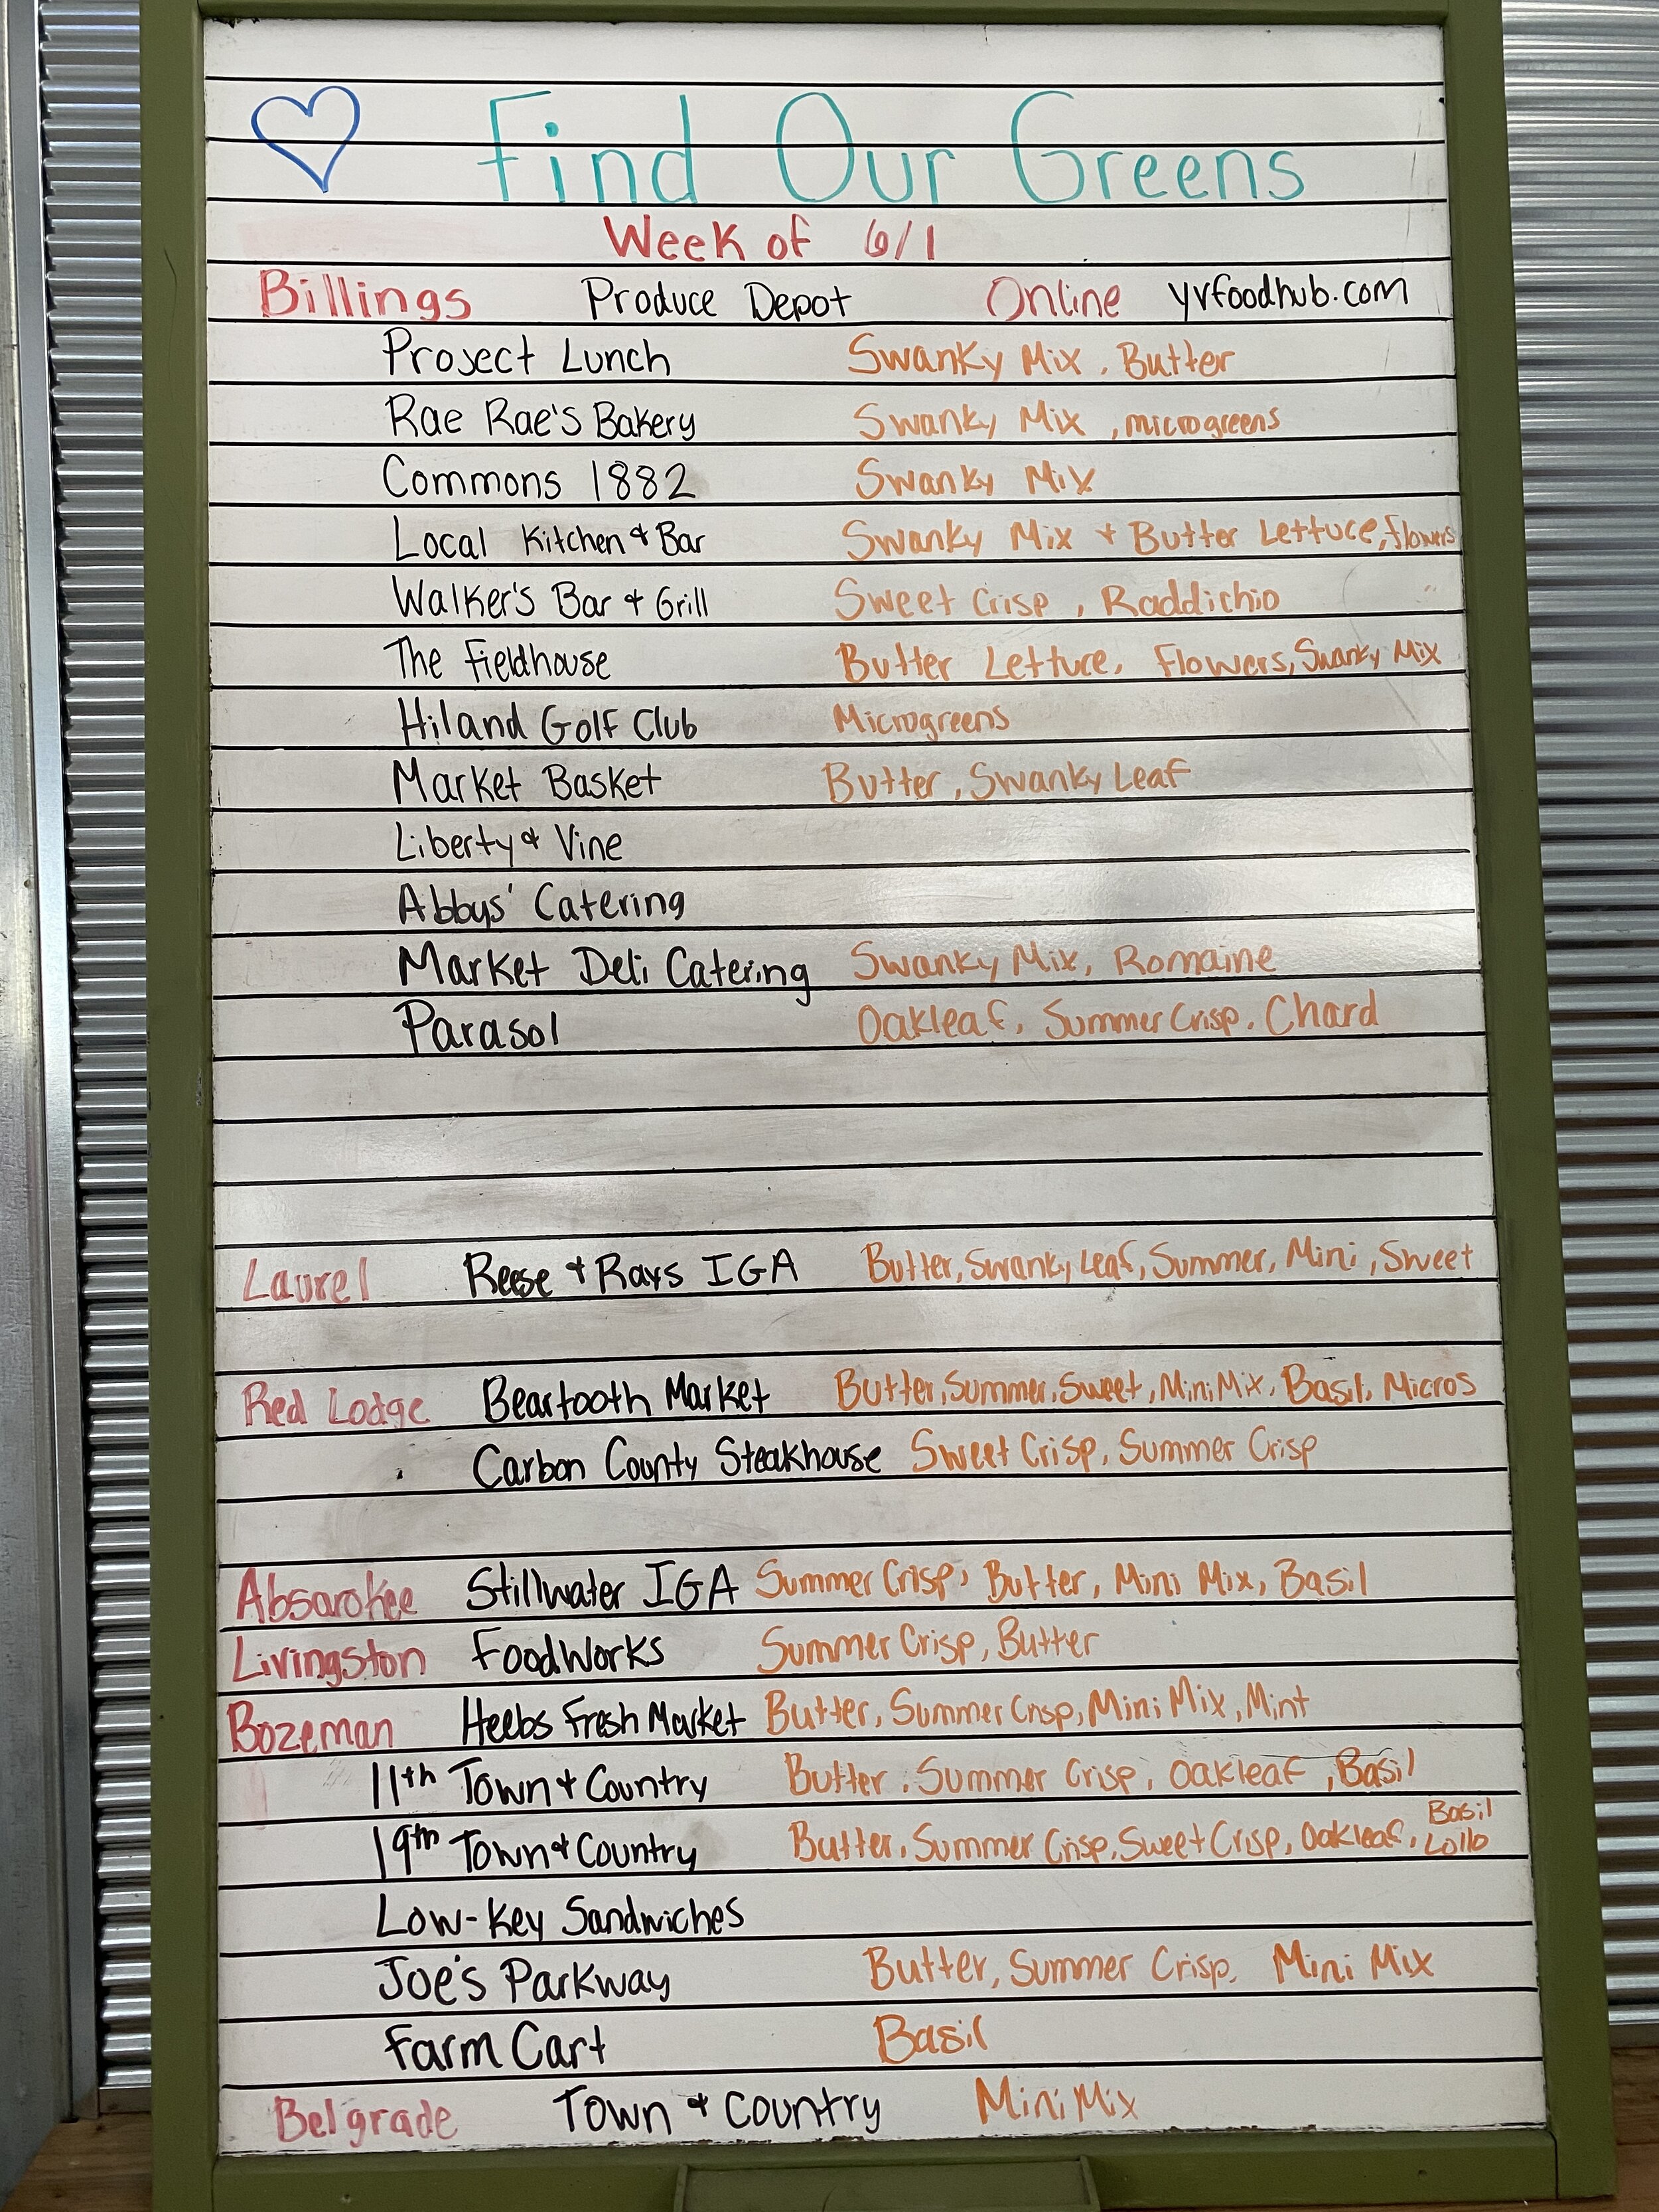 Find Our Greens
Week of 6/1
Billings Produce Depot Online yvfoodhub.com
Project Lunch Swanky Mix, Butter
Rae Rae's Bakery Swanky Mix, microgreens
Commons 1882 Swanky Mix
Local Kitchen & Bar Swanky Mix + Butter Lettuce, flowers
Walker's Bar & Grill Sweet Crisp, Raddichio
The Fieldhouse Butter Lettuce, Flowers, Swanky Mix
Hiland Golf Club Microgreens
Market Basket Butter, Swanky Leaf
Liberty & Vine
Abbys' Catering
Market Deli Catering Swanky Mix, Romaine
Parasol Oakleaf, Summer Crisp, Chard
Laurel Reese & Rays IGA Butter, Swanky Leaf, Summer, Mini, Sweet
Red Lodge Beartooth Market Butter, Summer, Sweet, Mini Mix, Basil, Micros
Carbon County Steakhouse Sweet Crisp, Summer Crisp
Absarokee Stillwater IGA Summer Crisp, Butter, Mini Mix, Basil
Livingston FoodWorks Summer Crisp, Butter
Bozeman Heebs Fresh Market Butter, Summer Crisp, Mini Mix, Mint
11th Town & Country Butter, Summer Crisp, Oakleaf, Basil
19th Town & Country Butter, Summer Crisp, Sweet Crisp, Oakleaf, Basil Lollo
Low-Key Sandwiches
Joe's Parkway Butter, Summer Crisp, Mini Mix
Farm Cart Basil
Belgrade Town & Country Mini Mix